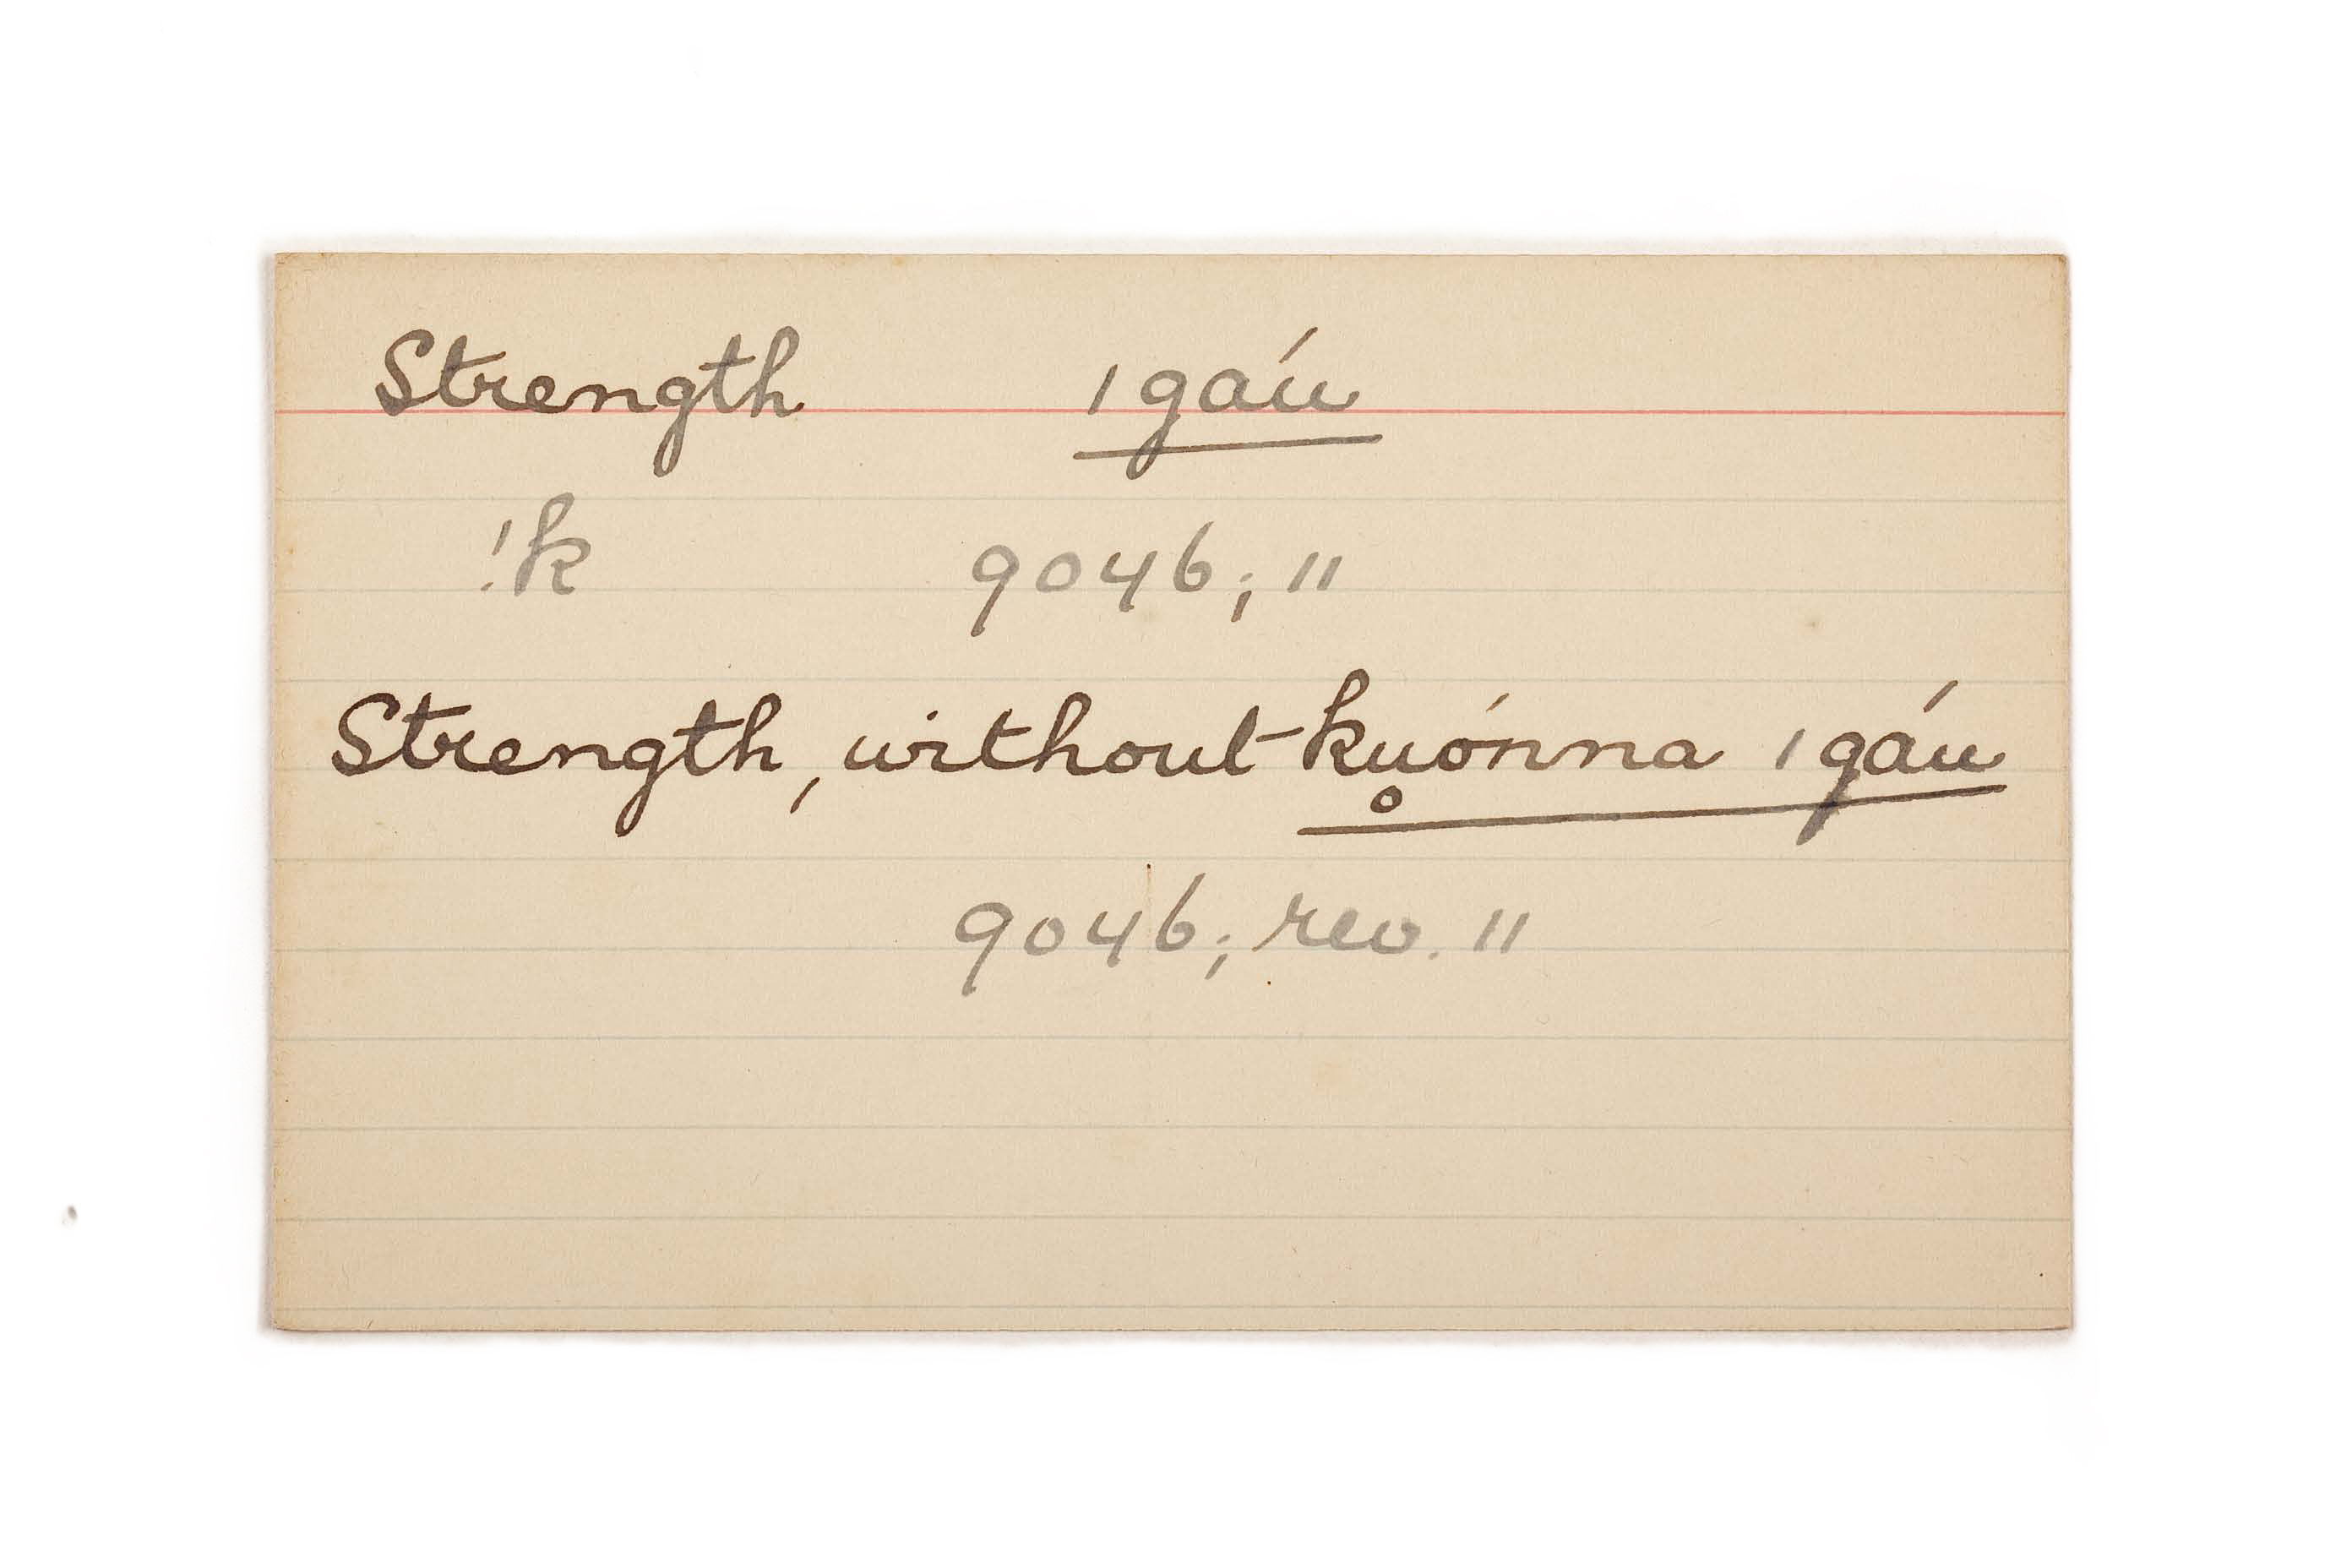 Strength ǀgáu
!k 9046; "
Strength, without ku̥ónna ǀgáu
9046; rev. "